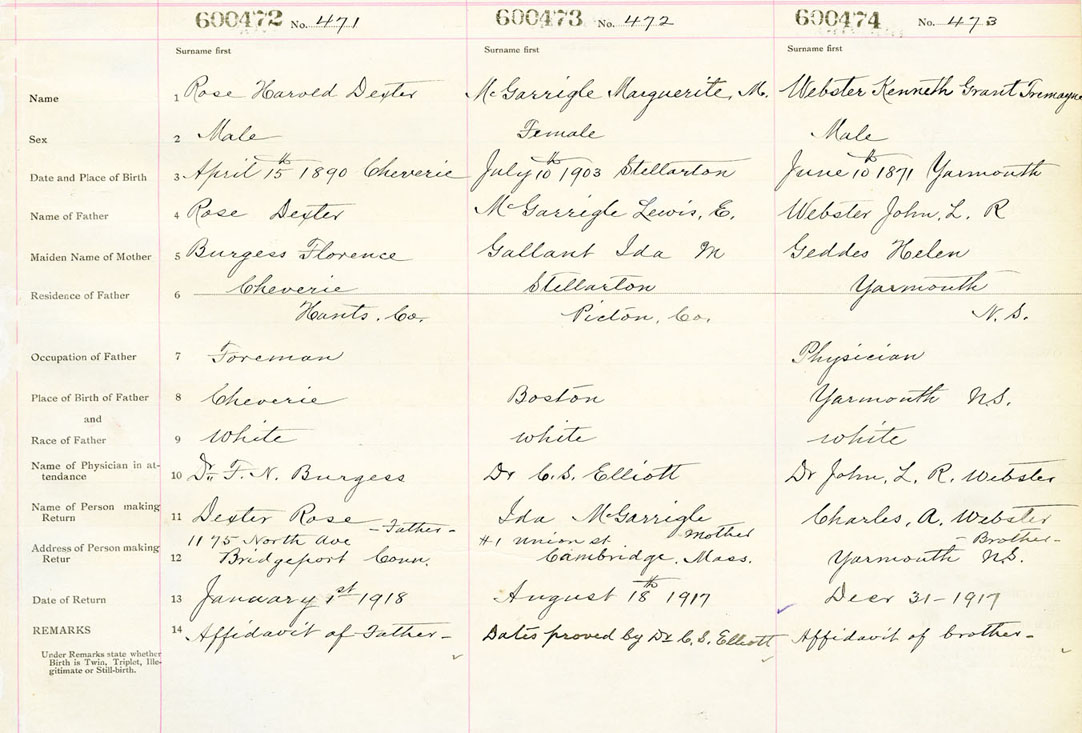 600472 No. 471 600473 No. 472 600474 No. 473
Surname first Surname first Surname first
Name 1 Rose Harold Dexter McGarrigle Marguerite, M. Webster Kenneth Grant Tremayne
Sex 2 Male Female Male
Date and Place of Birth 3 April 15th 1890 Cheverie July 10th 1903 Stellarton June 10th 1871 Yarmouth
Name of Father 4 Rose Dexter McGarrigle Lewis, E. Webster John, L. R
Maiden Name of Mother 5 Burgess Florence Gallant Ida M Geddes Helen
Residence of Father 6 Cheverie Stellarton Yarmouth
Hants. Co. Picton, Co. N.S.
Occupation of Father 7 Foreman Physician
Place of Birth of Father 8 Cheverie Boston Yarmouth N.S.
and
Race of Father 9 White white white
Name of Physician in at-
tendance 10 Dr. F. N. Burgess Dr C. S. Elliott Dr John, L. R. Webster
Name of Person making
Return 11 Dexter Rose - Father - Ida McGarrigle Mother Charles, A. Webster - Brother -
1175 North Ave #1 Union st
Address of Person making
Retur 12 Bridgeport Conn. Cambridge, Mass. Yarmouth N.S.
Date of Return 13 January 1st 1918 August 18th 1917 Decr 31-1917
REMARKS 14 Affidavit of Father - Dates proved by Dr C. S. Elliott Affidavit of brother -
Under Remarks state whether
Birth is Twin, Triplet, Ille-
gitimate or Still-birth.